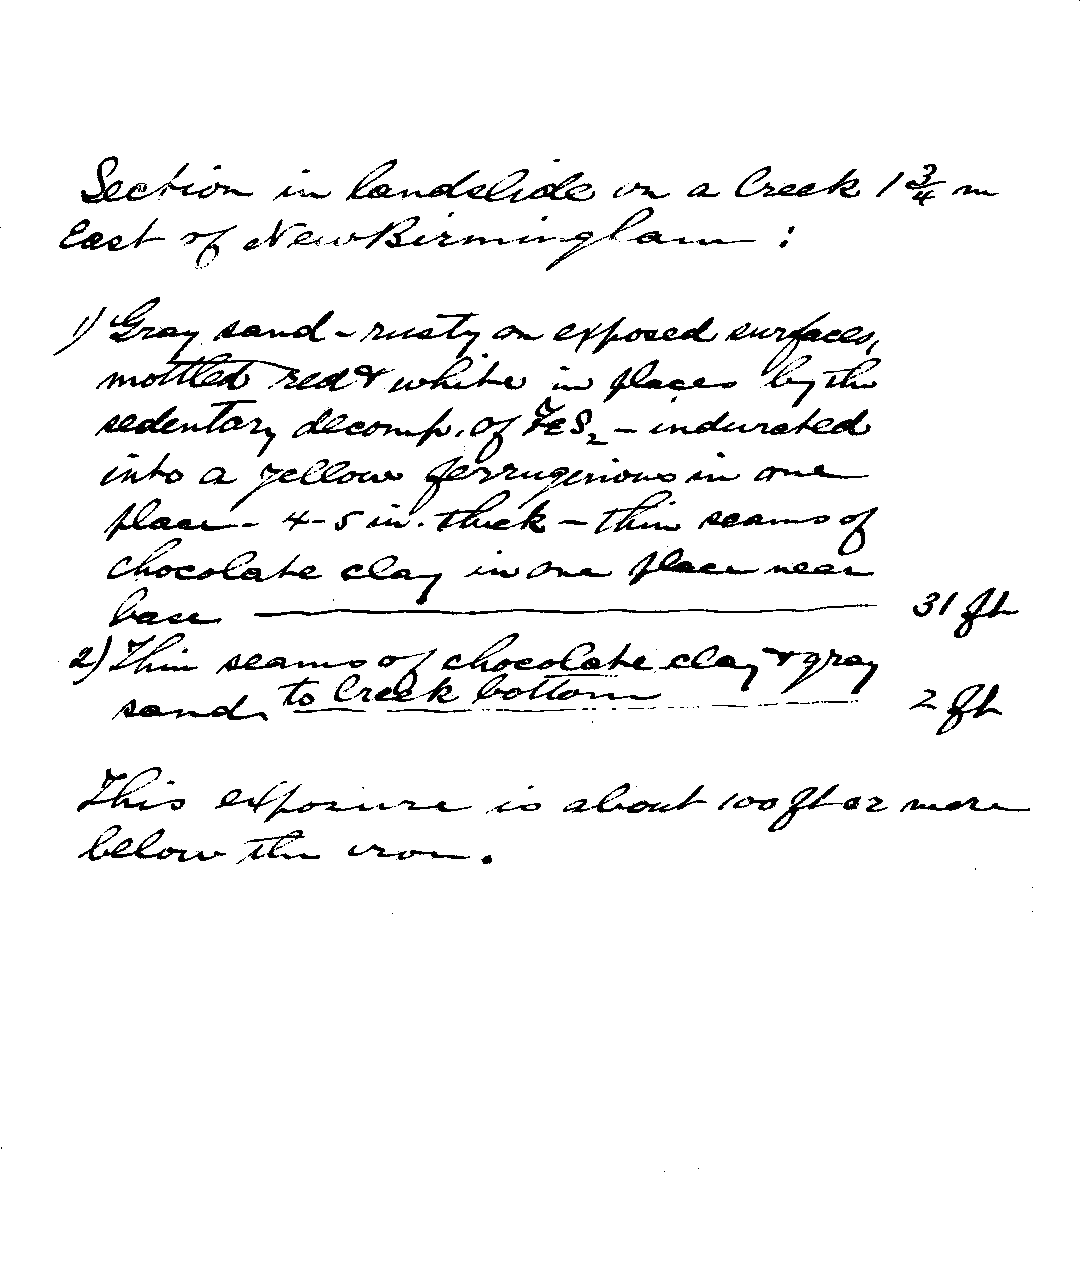 Section in landslide on a Creek 1 3/4 m
East of New Birmingham :
1) Gray sand - rusty on exposed surfaces,
mottled red & white in places by the
sedentary decomp. of FeS2 - indurated
into a yellow ferruginious in one
place - 4-5 in. thick - thin seams of
chocolate clay in one place near
base 31 ft
2) Thin seams of chocolate clay & gray
sand, to Creek bottom 2 ft
This exposure is about 100 ft or more
below the iron.